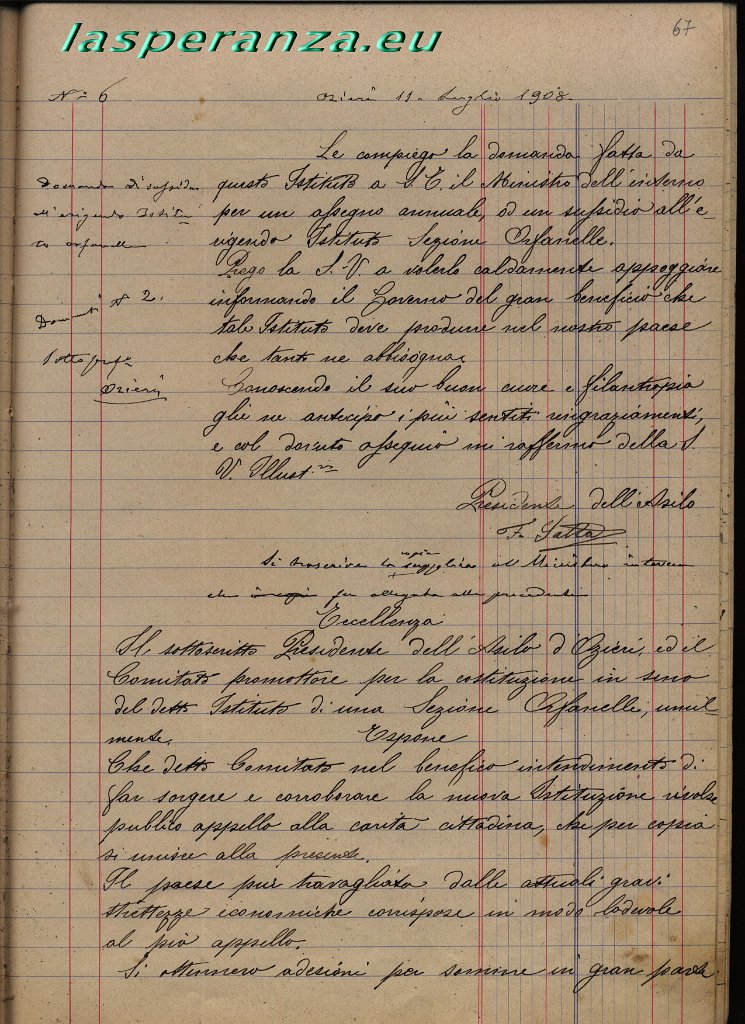 lasperanza.eu
67
Nº 6 Ozieri 11 Luglio 1908
Le compiego la domanda fatta da
Domanda di sussidio
questo Istituto a S. E. il Ministro dell'interno
all'erigendo Istitu
per un assegno annuale, od un sussidio all'e-
to orfanelle
rigendo Istituto Sezione Orfanelle.
Prego la S. V. a volerlo caldamente appoggiare
Nº 2.
informando il Governo del gran beneficio che
tale Istituto deve produrre nel nostro paese
Sottoprefº
che tanto ne abbisogna.
Ozieri
Conoscendo il suo buon cuore e filantropia
glie ne antecipo i più sentiti ringraziamenti,
e col dovuto ossequio mi raffermo della S.
V. Illust.ma
Presidente dell'Asilo
F. Satta
copia
Si trascrive la supplica al Ministero interno
che fu allegata alla precedente
Eccellenza
Il sottoscritto Presidente dell'Asilo d'Ozieri, ed il
Comitato promottore per la costituzione in seno
del detto Istituto di una Sezione Orfanelle, umil-
mente. Espone
Che detto Comitato nel benefico intendimento di
far sorgere e corroborare la nuova Istituzione rivolse
pubblico appello alla carità cittadina, che per copia
si unisce alla presente.
Il paese pur travagliato dalle attuali gravi
strettezze economiche corrispose in modo lodevole
al pio appello.
Si ottennero adesioni per somme in gran parte